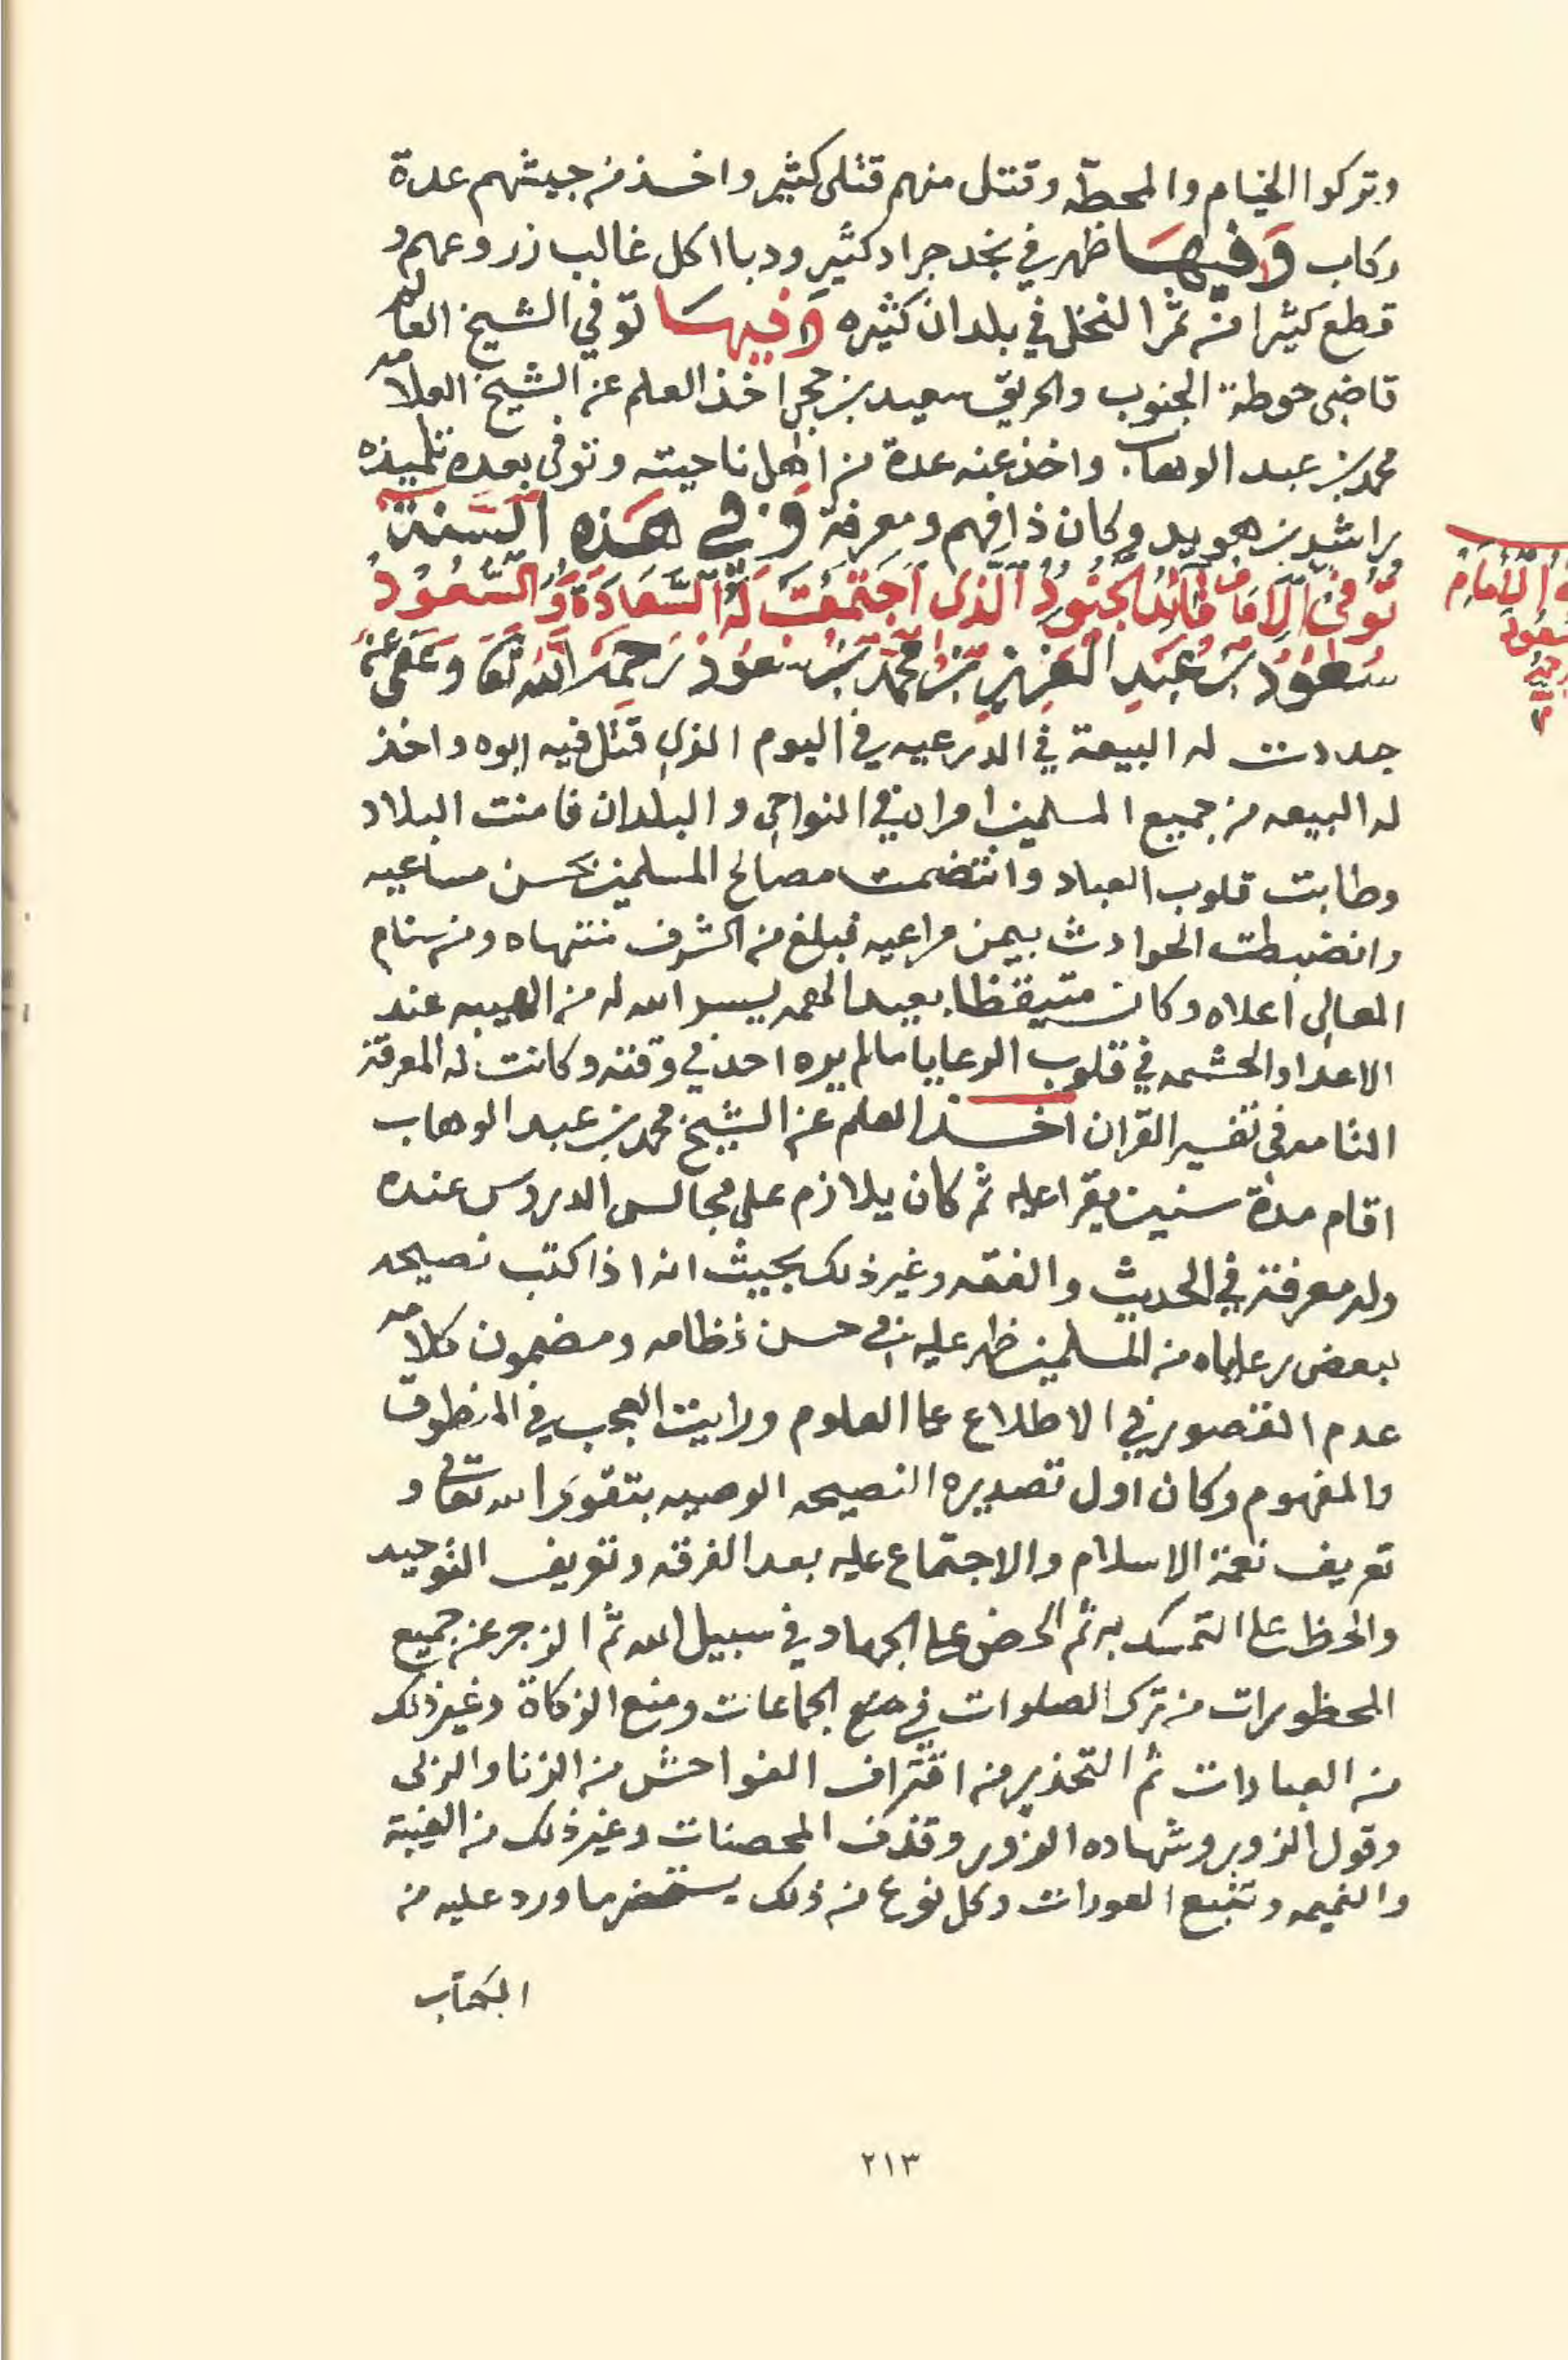 وتركوا الخيام والمحطه وقتل منهم قتلى كثير واخذ من جيشهم عدة
ركاب وفيها ظهر في نجد جراد كثير ودبا اكل غالب زروعهم و
قطع كثيرا من ثمر النخل في بلدان كثيره وفيها توفي الشيخ العالم
قاضي حوطة الجنوب والحريق سعيد بن حجي اخذ العلم عن الشيخ العلامه
محمد بن عبد الوهاب واخذ عنه عدة من اهل ناحيته وتوفى بعده تلميذه
راشد بن هويد وكان ذا فهم ومعرفة وفي هذه السنة
توفي الامام قائد الجنود الذي اجتمعت له السعادة والسعود
سعود بن عبد العزيز بن محمد بن سعود رحمه الله تعا وعفى عنه
جددت له البيعة في الدرعيه في اليوم الذي قتل فيه ابوه واخذ
له البيعه من جميع المسلمين امراء في النواحي والبلدان فامنت البلاد
وطابت قلوب العباد وانتضمت مصالح المسلمين بحسن مساعيه
وانضبطت الحوادث بيمن مراعيه فبلغ من الشرف منتهاه ومن سنام
المعالي اعلاه وكان متيقظا بعيد الهمه يسر الله له من الهيبه عند
الاعدا والحشمه في قلوب الرعايا مالم يره احد في وقته وكانت له المعرفة
التامه في تفسير القران اخذ العلم عن الشيخ محمد بن عبد الوهاب
اقام مدة سنين يقرا عليه ثم كان يلازم على مجالس الدروس عنده
وله معرفة في الحديث والفقه وغير ذلك بحيث انه اذا كتب نصيحه
لبعض رعاياه من المسلمين ظهر عليه في حسن نظامه ومضمون كلامه
عدم القصور في الاطلاع على العلوم ورايت العجب في المنطوق
والمفهوم وكان اول تصديره النصيحه الوصيه بتقوى الله تعالى و
تعريف نعمة الاسلام والاجتماع عليه بعد الفرقه وتعريف التوحيد
والحظ على التمسك به ثم الحض على الجهاد في سبيل الله ثم الزجر عن جميع
المحظورات من ترك الصلوات في الجماعات ومنع الزكاة وغير ذلك
من العبادات ثم التحذير من اقتراف الفواحش من الزنا والزلى
وقول الزور وشهاده الزور وقذف المحصنات وغير ذلك من الغيبة
والنميمه وتتبع العورات وكل نوع من ذلك يستحضر ما ورد عليه من
الكتاب
الامام
٢١٣